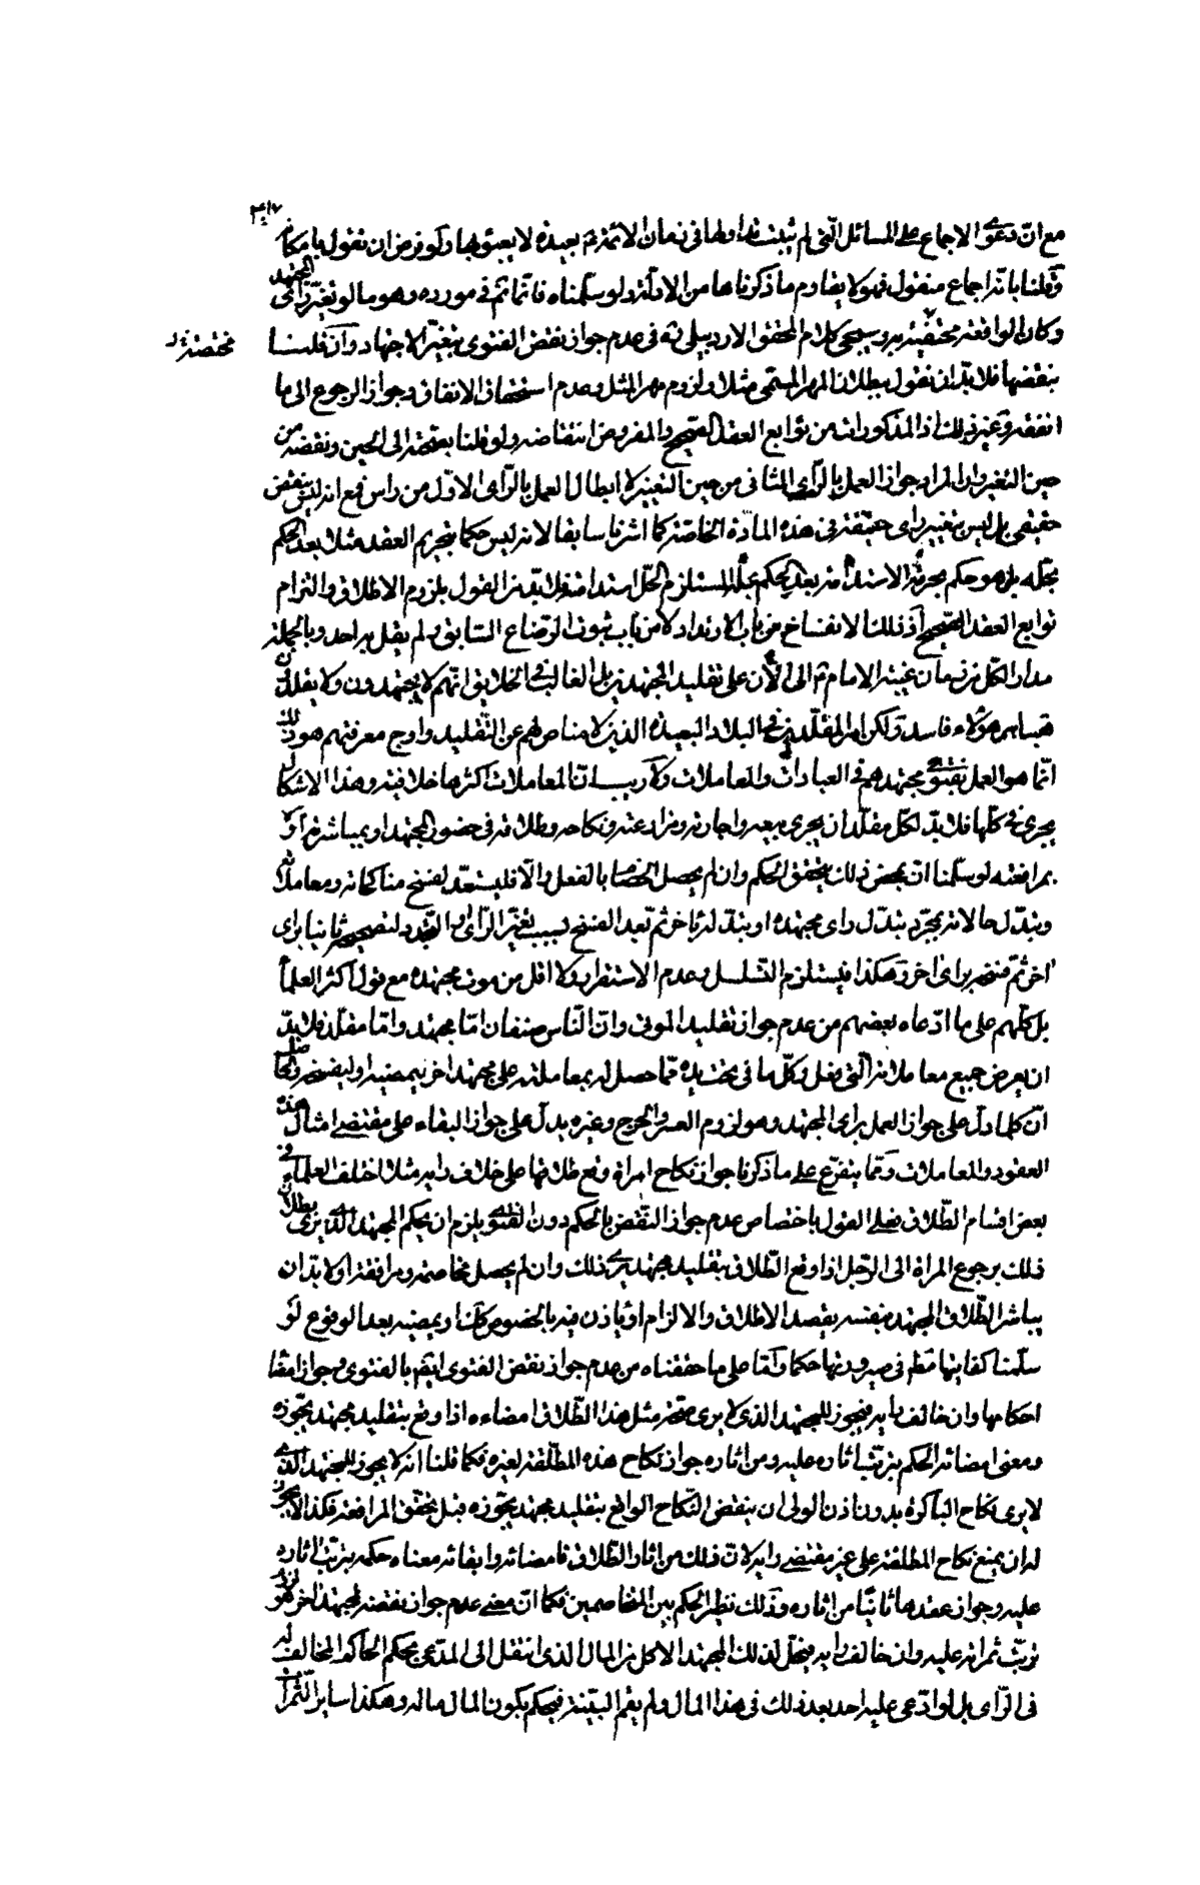 ٤١٧
مع انّ دعوى الاجماع على المسائل الّتى لم يثبت تداولها فى زمان الائمّة بعيدة لا يعبؤ بها ولو فرض ان نقول بامكانه
وقلنا بانّه اجماع منقول فهو لا يقاوم ما ذكرناها من الادلّة ولو سلّمناه فانّما تمّ فى مورده وهو ما لو تغيّر راى المجتهد
وكان الواقعة مختصّة به وسيجئ كلام المحقق الاردبيلى ره فى عدم جواز نقض الفتوى بتغيّر الاجتهاد وان قلنا
مختصة
بنقضها فلا بدّ ان نقول ببطلان المهر المسمّى مثلا ولزوم مهر المثل وعدم استحقاق الانفاق وجواز الرجوع الى ما
انفقه وغير ذلك اذ المذكورات من توابع العقد الصّحيح والمفروض انتقاضه ولو قلنا بصحّته الى الحين ونقضه من
حين التغير وانّ المراد جواز العمل بالرّاى الثانى من حين التغيير لا ابطال العمل بالرّاى الاوّل من راس فمع انه ليس بنقض
حقيقى بل ليس بتغيير راى حقيقة فى هذه المادّة الخاصّة كما اشرنا سابقا لانه ليس حكما بتحريم العقد مثلا بعد الحكم
بحلّه بل هو حكم بحرمة الاستدامة بعد الحكم بحلّه المستلزم لحلّ استدامته فلا بدّ من القول بلزوم الاطلاق والتزام
توابع العقد الصّحيح اذ ذلك الانفساخ من باب الارتداد لا من باب ثبوت الرضاع السّابق ولم يقل به احد وبالجملة
مدار الكلّ من زمان غيبة الامام ع الى الآن على تقليد المجتهدين بل الغالب فى الخلايق انّهم لا يجتهدون ولا يقلّدون
فبساهم هؤلاء فاسد ولكن امر المقلّدين فى البلاد البعيدة الذين لا مناص لهم عن التّقليد واوج معرفتهم هو ذلك
انّما هو العمل بفتوى مجتهدهم فى العبادات والمعاملات ولا ريب انّ المعاملات اكثرها خلافية وهذا الاشكال
يجرى فى كلّها فلا بدّ لكلّ مقلّد ان يجرى بيعه واجارته ومزارعته ونكاحه وطلاقه فى حضور المجتهد او بمباشرته او
بمرافعته لو سلّمنا انّ بمحض ذلك يتحقق الحكم وان لم يحصل الخصام بالفعل والّا فليستعدّ لفسخ مناكحاته ومعاملاته
وتبدّل حالاته بمجرّد تبدّل راى مجتهده او تبدّله باخر ثم بعد الفسخ بسبب تغيّر الرّاى والتجدد لتصحيح ثانيا براى
اخر ثمّ فسخه براى اخر وهكذا فيستلزم التسلسل وعدم الاستقرار ولا اقل من موت مجتهده مع قول اكثر العلماء
بل كلّهم على ما ادّعاه بعضهم من عدم جواز تقليد الموتى وانّ النّاس صنفان امّا مجتهد وامّا مقلّد فلا بدّ
ان يعرض جميع معاملاته الّتى فعل وكلّ ما فى تحت يده ممّا حصل له بمعاملته على مجتهد اخر ليمضيه او ليفسخه والحاصل
انّ كلما دلّ على جواز العمل براى المجتهد وهو لزوم العسر والحرج وغيره يدلّ على جواز البقاء على مقتضى امثال هذه
العقود والمعاملات وممّا يتفرّع على ما ذكرنا جواز نكاح امراة وقع طلاقها على خلاف رايه مثلا اختلف العلماء فى
بعض اقسام الطّلاق فعلى القول باختصاص عدم جواز النّقض بالحكم دون الفتوى يلزم ان يحكم المجتهد الّذى يرى بطلان
ذلك برجوع المراة الى الرّجل اذا وقع الطّلاق بتقليد مجتهد يرى ذلك وان لم يحصل مخاصمة ومرافعة او لا بدّ ان
يباشر الطّلاق المجتهد بنفسه بقصد الاطلاق والالزام او ياذن فيه بالخصوص كذلك او يمضيه بعد الوقوع لو
سلّمنا كفايتها فيه فى صيرورتها حكما وامّا على ما حققناه من عدم جواز نقض الفتوى ايضا بالفتوى وجواز امضاء
احكامها وان خالف رايه فيجوز للمجتهد الذى لا يرى صحّة مثل هذا الطّلاق امضاءه اذا وقع بتقليد مجتهد يجوّزه
ومعنى امضائه الحكم بترتّب اثاره عليه ومن اثاره جواز نكاح هذه المطلّقة لغيره فكما قلنا انه لا يجوز للمجتهد الّذى
لا يرى نكاح الباكرة بدون اذن الولى ان ينقض النّكاح الواقع بتقليد مجتهد يجوّزه قبل تحقّق المرافعة فكذا لا يجوز
له ان يمنع نكاح المطلقة على غير مقتضى رايه لانّ ذلك من اثار الطّلاق فامضائه وابقائه معناه حكمه بترتّب اثاره
عليه وجواز عقدها ثانيا من اثاره وذلك نظير الحكم بين المتخاصمين فكما انّ معنى عدم جواز نقضه لمجتهد اخر هو لزوم
ترتّب ثمراته عليه وان خالف رايه فيحلّ لذلك المجتهد الاكل من المال الذى انتقل الى المدّعى بحكم الحاكم المخالف له
فى الرّاى بل لو ادّعى عليه احد بعد ذلك فى هذا المال ولم يقم البيّنة فيحكم بكون المال ماله وهكذا ساير الثّمرات